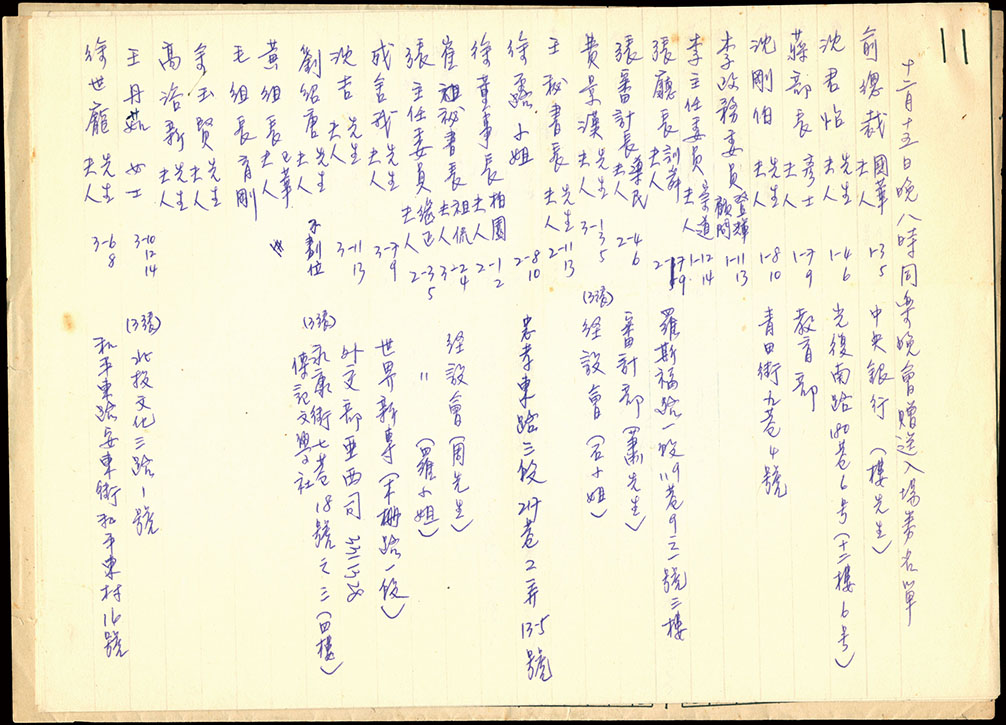 11
十二月十五日晚八時同樂晚會贈送入場券名單
俞總裁 國華 夫人 1-3 5 中央銀行（樓先生）
沈君怡 先生 夫人 1-4 6 光復南路180巷6号（十二樓6号）
蔣部長 彥士 夫人 1-7 9 教育部
沈剛伯 先生 夫人 1-8 10 青田街九巷4號
李政務委員 登輝 顧問 1-11 13
李主任委員 崇道 夫人 1-12 14
張廳長 訓舜 夫人 2-17 19 羅斯福路一段119巷9之一號三樓
張審計長 導民 夫人 2-4 6 審計部（蕭先生）
費景漢 先生 夫人 3-1 3 5 (3張) 経設會（石小姐）
王秘書長 先生 夫人 2-11 13
徐露小姐 2-8 10 忠孝東路三段217巷2弄13-5號
徐董事長 柏園 夫人 2-1 2
崔祖秘書長 祖侃 夫人 3-2 4 経設會（周先生）
張主任委員 繼正 夫人 2-3 5 〃（羅小姐）
成舍我 先生 夫人 3-7 9 世界新專（木柵路一段）
沈吉 先生 夫人 3-11 13 外交部亞西司
劉紹唐 先生 夫人 不劃位 (3張) 永康街七巷18號之三（四樓）
傳記文學社
黃組長 夫人
毛組長 育剛
余玉賢 先生 夫人
高洽新 先生 夫人
王丹茹 女士 3-10 12 14 (3張) 北投文化三路1號
徐世龐 先生 夫人 3-6 8 和平東路安東街和平東村16號